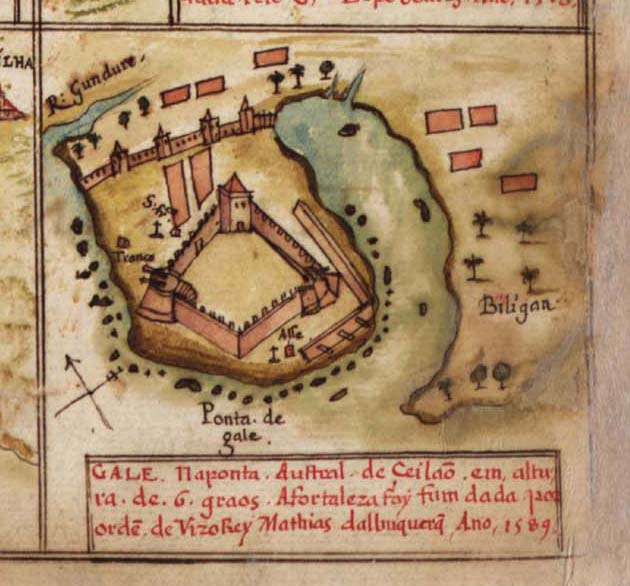 ILHA
R. Gundure.
S.
Tronco
Alfa
Biligan
Ponta. de
gale.
GALE. Naponta. Austral. de Ceilaõ. em, altu,
ra. de. 6. graos. Afortaleza foy fumdada por
ordẽ. de Vizo Rey Mathias dalbuquerq̃, Ano, 1589.